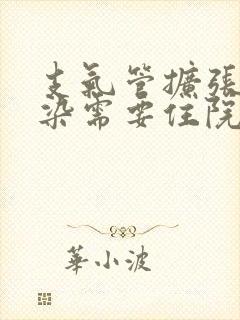 支氣管擴張
染需要住院
華小波